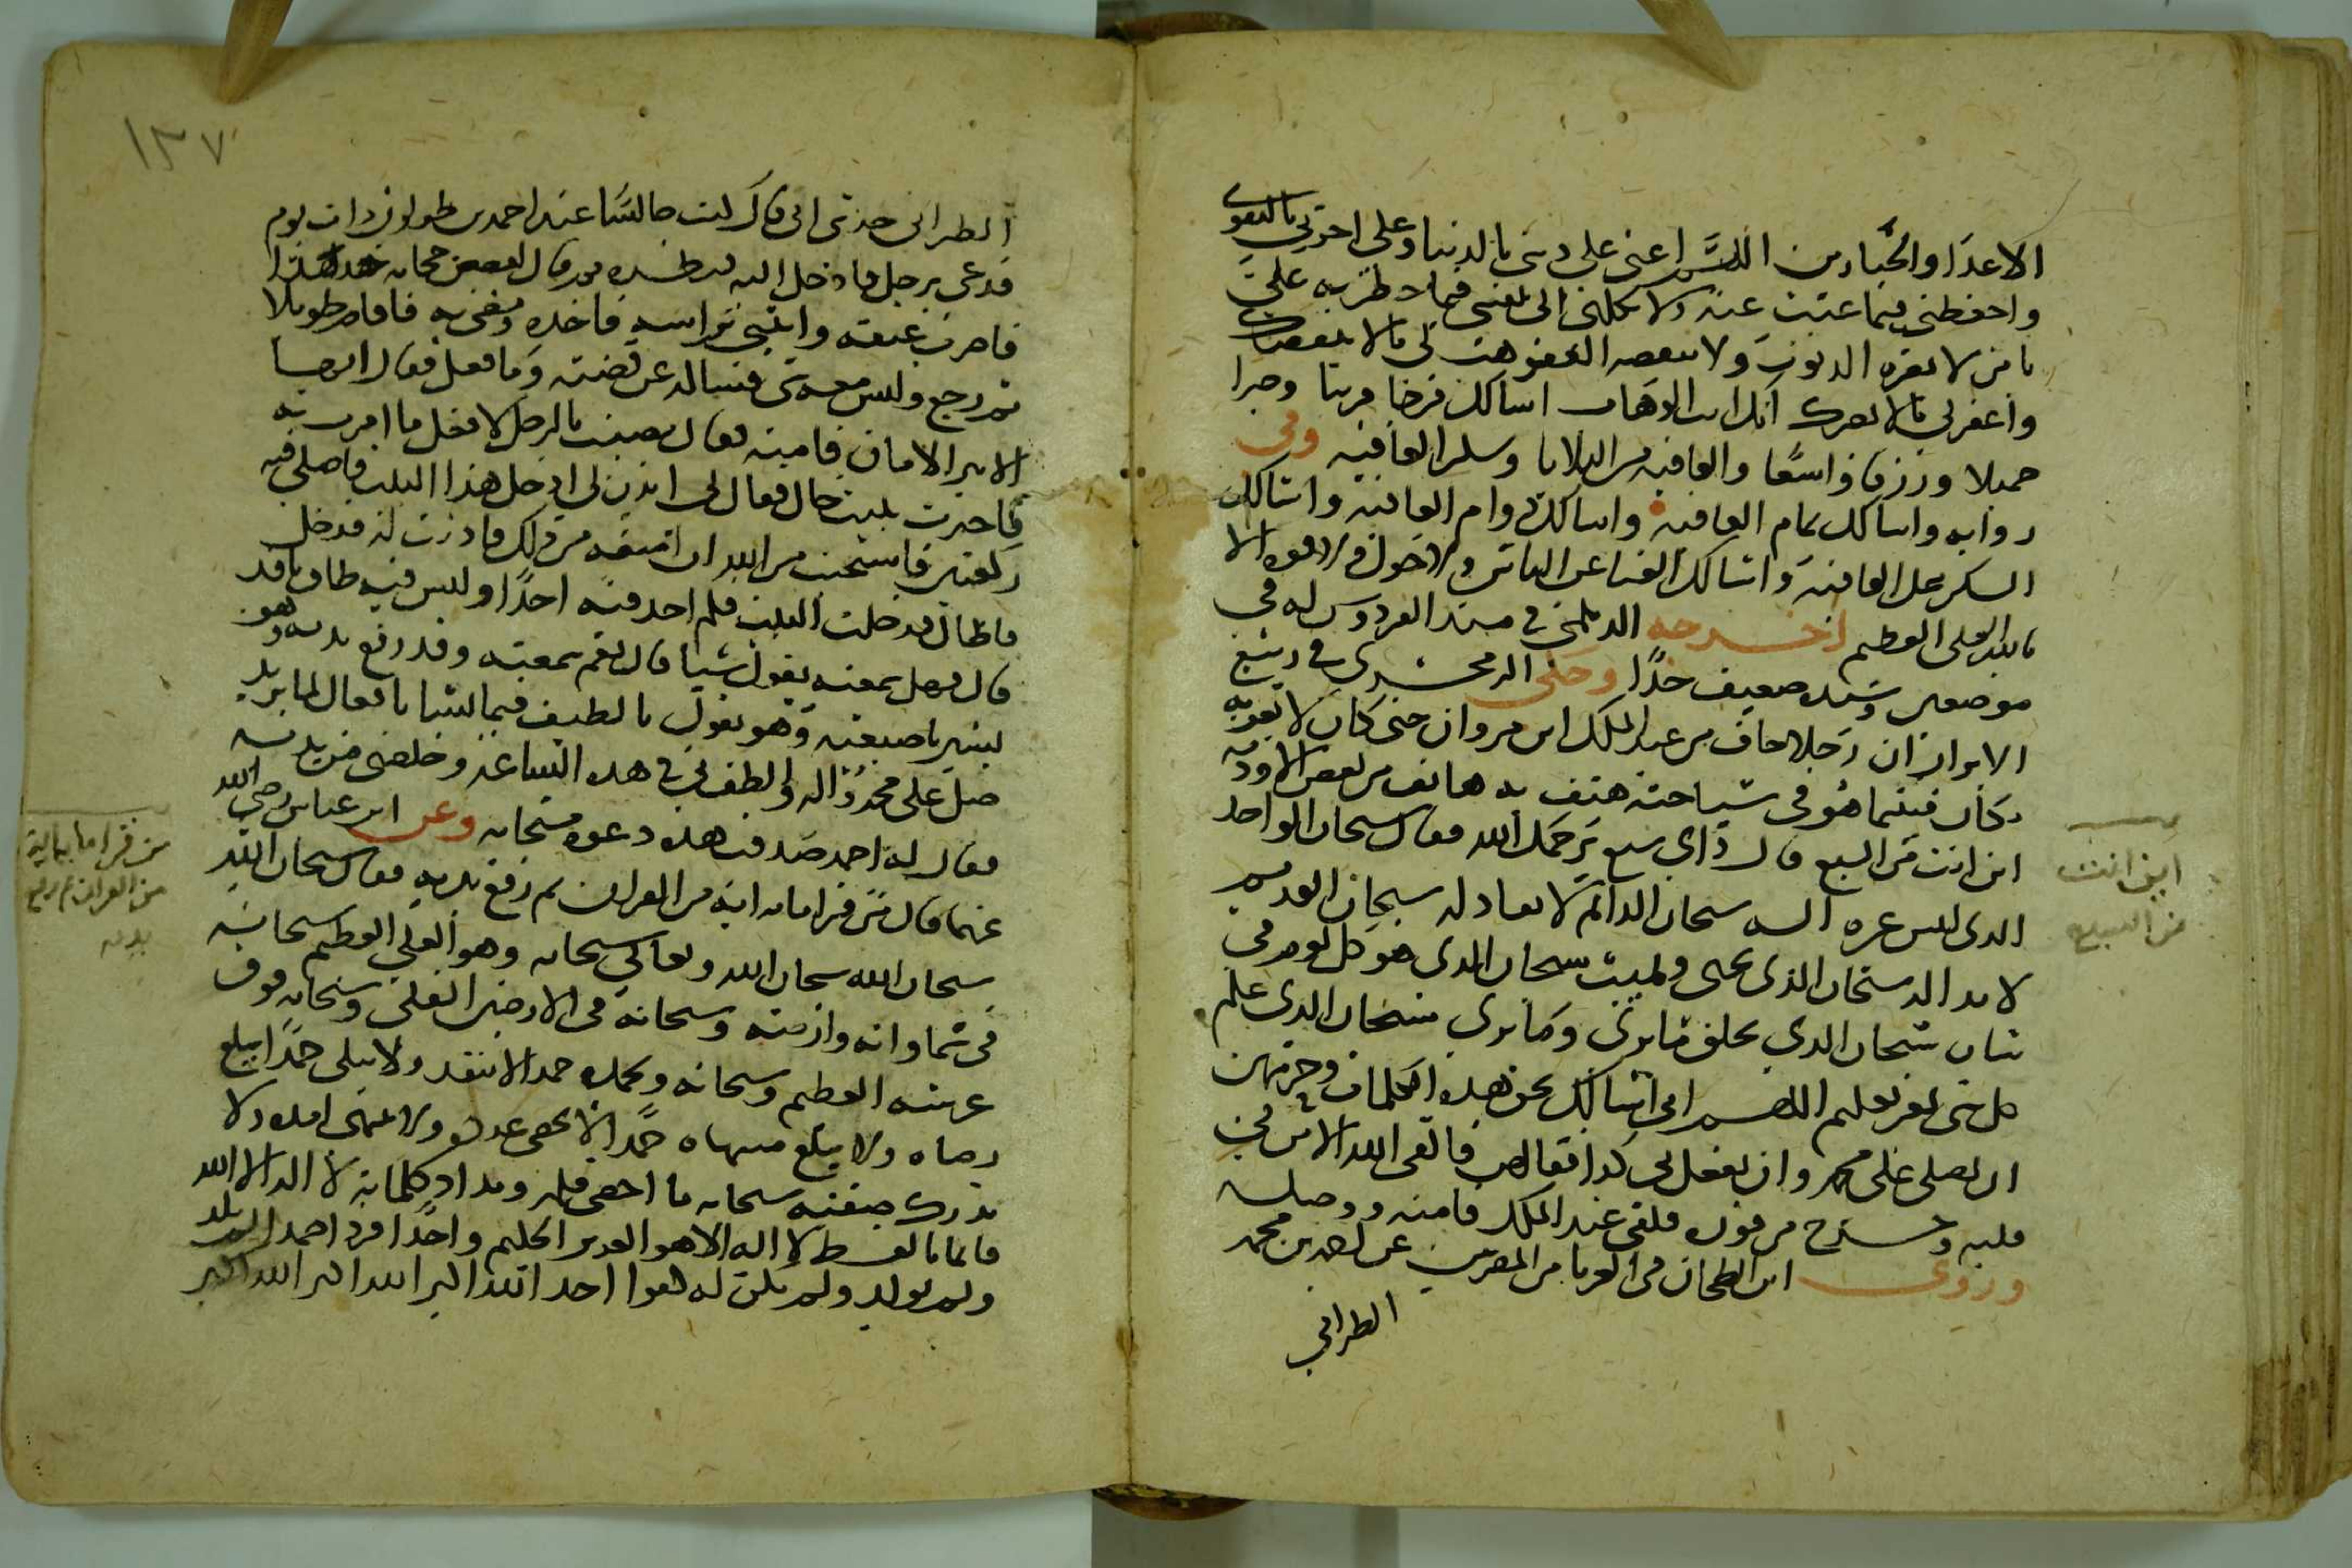 الاعدا والجبارين اللهم اعني على ديني بالدنيا وعلى اخرتي بالتقوى
واحفظني فيما غبت عنه ولا تكلني الى نفسي فيما حظرته علي
يا من لا تضره الذنوب ولا تنقصه المغفرة هب لي ما لا ينقصك
واغفر لي ما لا يضرك انك انت الوهاب اسالك فرجا قريبا وصبرا
جميلا ورزقا واسعا والعافيه من البلايا وشكر العافيه وفي
روايه واسالك تمام العافيه واسالك دوام العافيه واسالك
الشكر على العافيه واسالك الغنا عن الناس ولا حول ولا قوه الا
بالله العلي العظيم اخرجه الديلمي في مسند الفردوس له في
موضعين وسنده ضعيف جدا وحكى الزمخشري في ربيع
الابرار ان رجلا خاف من عبد الملك ابن مروان حتى كان لا يقر به
مكان فبينما هو في سياحته هتف به هاتف من بعض الاوديه
اين انت من السبع قال واي سبع يرحمك الله فقال سبحان الواحد
الذي ليس غيره اله سبحان الدائم لا نفاد له سبحان القديم
لا بدا له سبحان الذي يحيي ويميت سبحان الذي هو كل يوم في
شان سبحان الذي يخلق ما يرى وما لا يرى سبحان الذي علم
كل شي بغير تعليم اللهم اني اسالك بحق هذه الكلمات وحرمتهن
ان تصلي على محمد وان تفعل لي كذا فقالهن فالقى الله الامن في
قلبه وخرج من فوره فلقي عبد الملك فامنه ووصله
وروى ابن الطحان في الغربا من المصريين عن احمد بن محمد
الطبراني
اين انت
من السبع
١٣٧
الطبراني حدثني ابي قال كنت جالسا عند احمد بن طولون ذات يوم
فدعي برجل فادخل اليه فناظره ثم قال لبعض حجابه خذ هذا
فاضرب عنقه وائتني براسه فاخذه ومضى به فاقام طويلا
ثم رجع وليس معه شي فساله عن قصته وما فعل فقال ايها
الامير الامان فامنه فقال مضيت بالرجل لافعل ما امرت به
فاجزت ببيت خال فقال لي ائذن لي ادخل هذا البيت فاصلي فيه
ركعتين فاستحيت من الله ان امنعه من ذلك فاذنت له فدخل
فاطال فدخلت البيت فلم اجد فيه احدا وليس فيه طاق نافذ
قال فهل سمعته يقول شيا قال نعم سمعته وقد رفع يديه وهو
يشير باصبعيه وهو يقول يا لطيف فيما يشا يا فعال لما يريد
صل على محمد واله والطف لي في هذه الساعه وخلصني من يديه
فقال له احمد صدقت هذه دعوه مستجابه وعن ابن عباس رضي الله
عنهما قال من قرا مايه ايه من القران ثم رفع يديه فقال سبحان الله
سبحان الله سبحان الله وتعالى سبحانه وهو العلي العظيم سبحانه
في سماواته وارضه وسبحانه في الارضين السفلى وسبحانه فوق
عرشه العظيم وسبحانه وبحمده حمدا لا ينفد ولا يبلى حمدا يبلغ
رضاه ولا يبلغ منتهاه حمدا لا يحصى عدده ولا ينتهي امده ولا
تدرك صفته سبحانه ما احصى قلمه ومداد كلماته لا اله الا الله
قائما بالقسط لا اله الا هو العزيز الحكيم واحدا فردا صمدا لم يلد
ولم يولد ولم يكن له كفوا احد الله اكبر الله اكبر الله اكبر
من قرا ماية اية
من القران ثم رفع
يديه